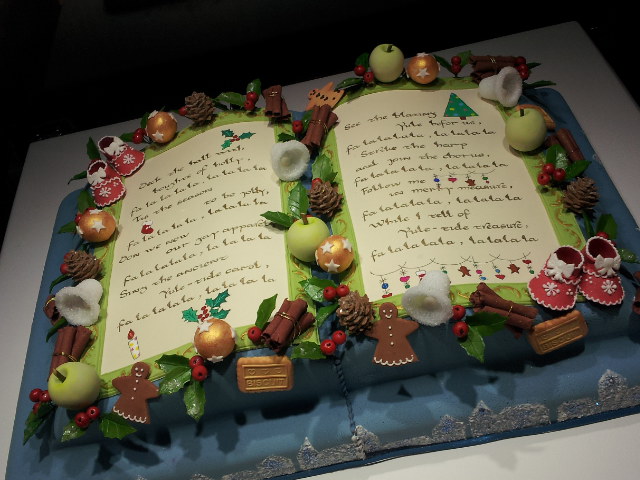 Deck the hall with
boughes of holly,
fa la la la la, la la la la
Tis the season
to be jolly,
fa la la la la, la la la la
Don we now
our gay apparel
fa la la la la, la la la la
Sing the ancient
Yule-tide carol,
fa la la la la, la la la la
See the blazing
Yule before us,
fa la la la la, la la la la
Strike the harp
and join the chorus,
fa la la la la, la la la la
Follow me
in merry measure,
fa la la la la, la la la la
While I tell of
Yule-tide treasure,
fa la la la la, la la la la
BISCUIT